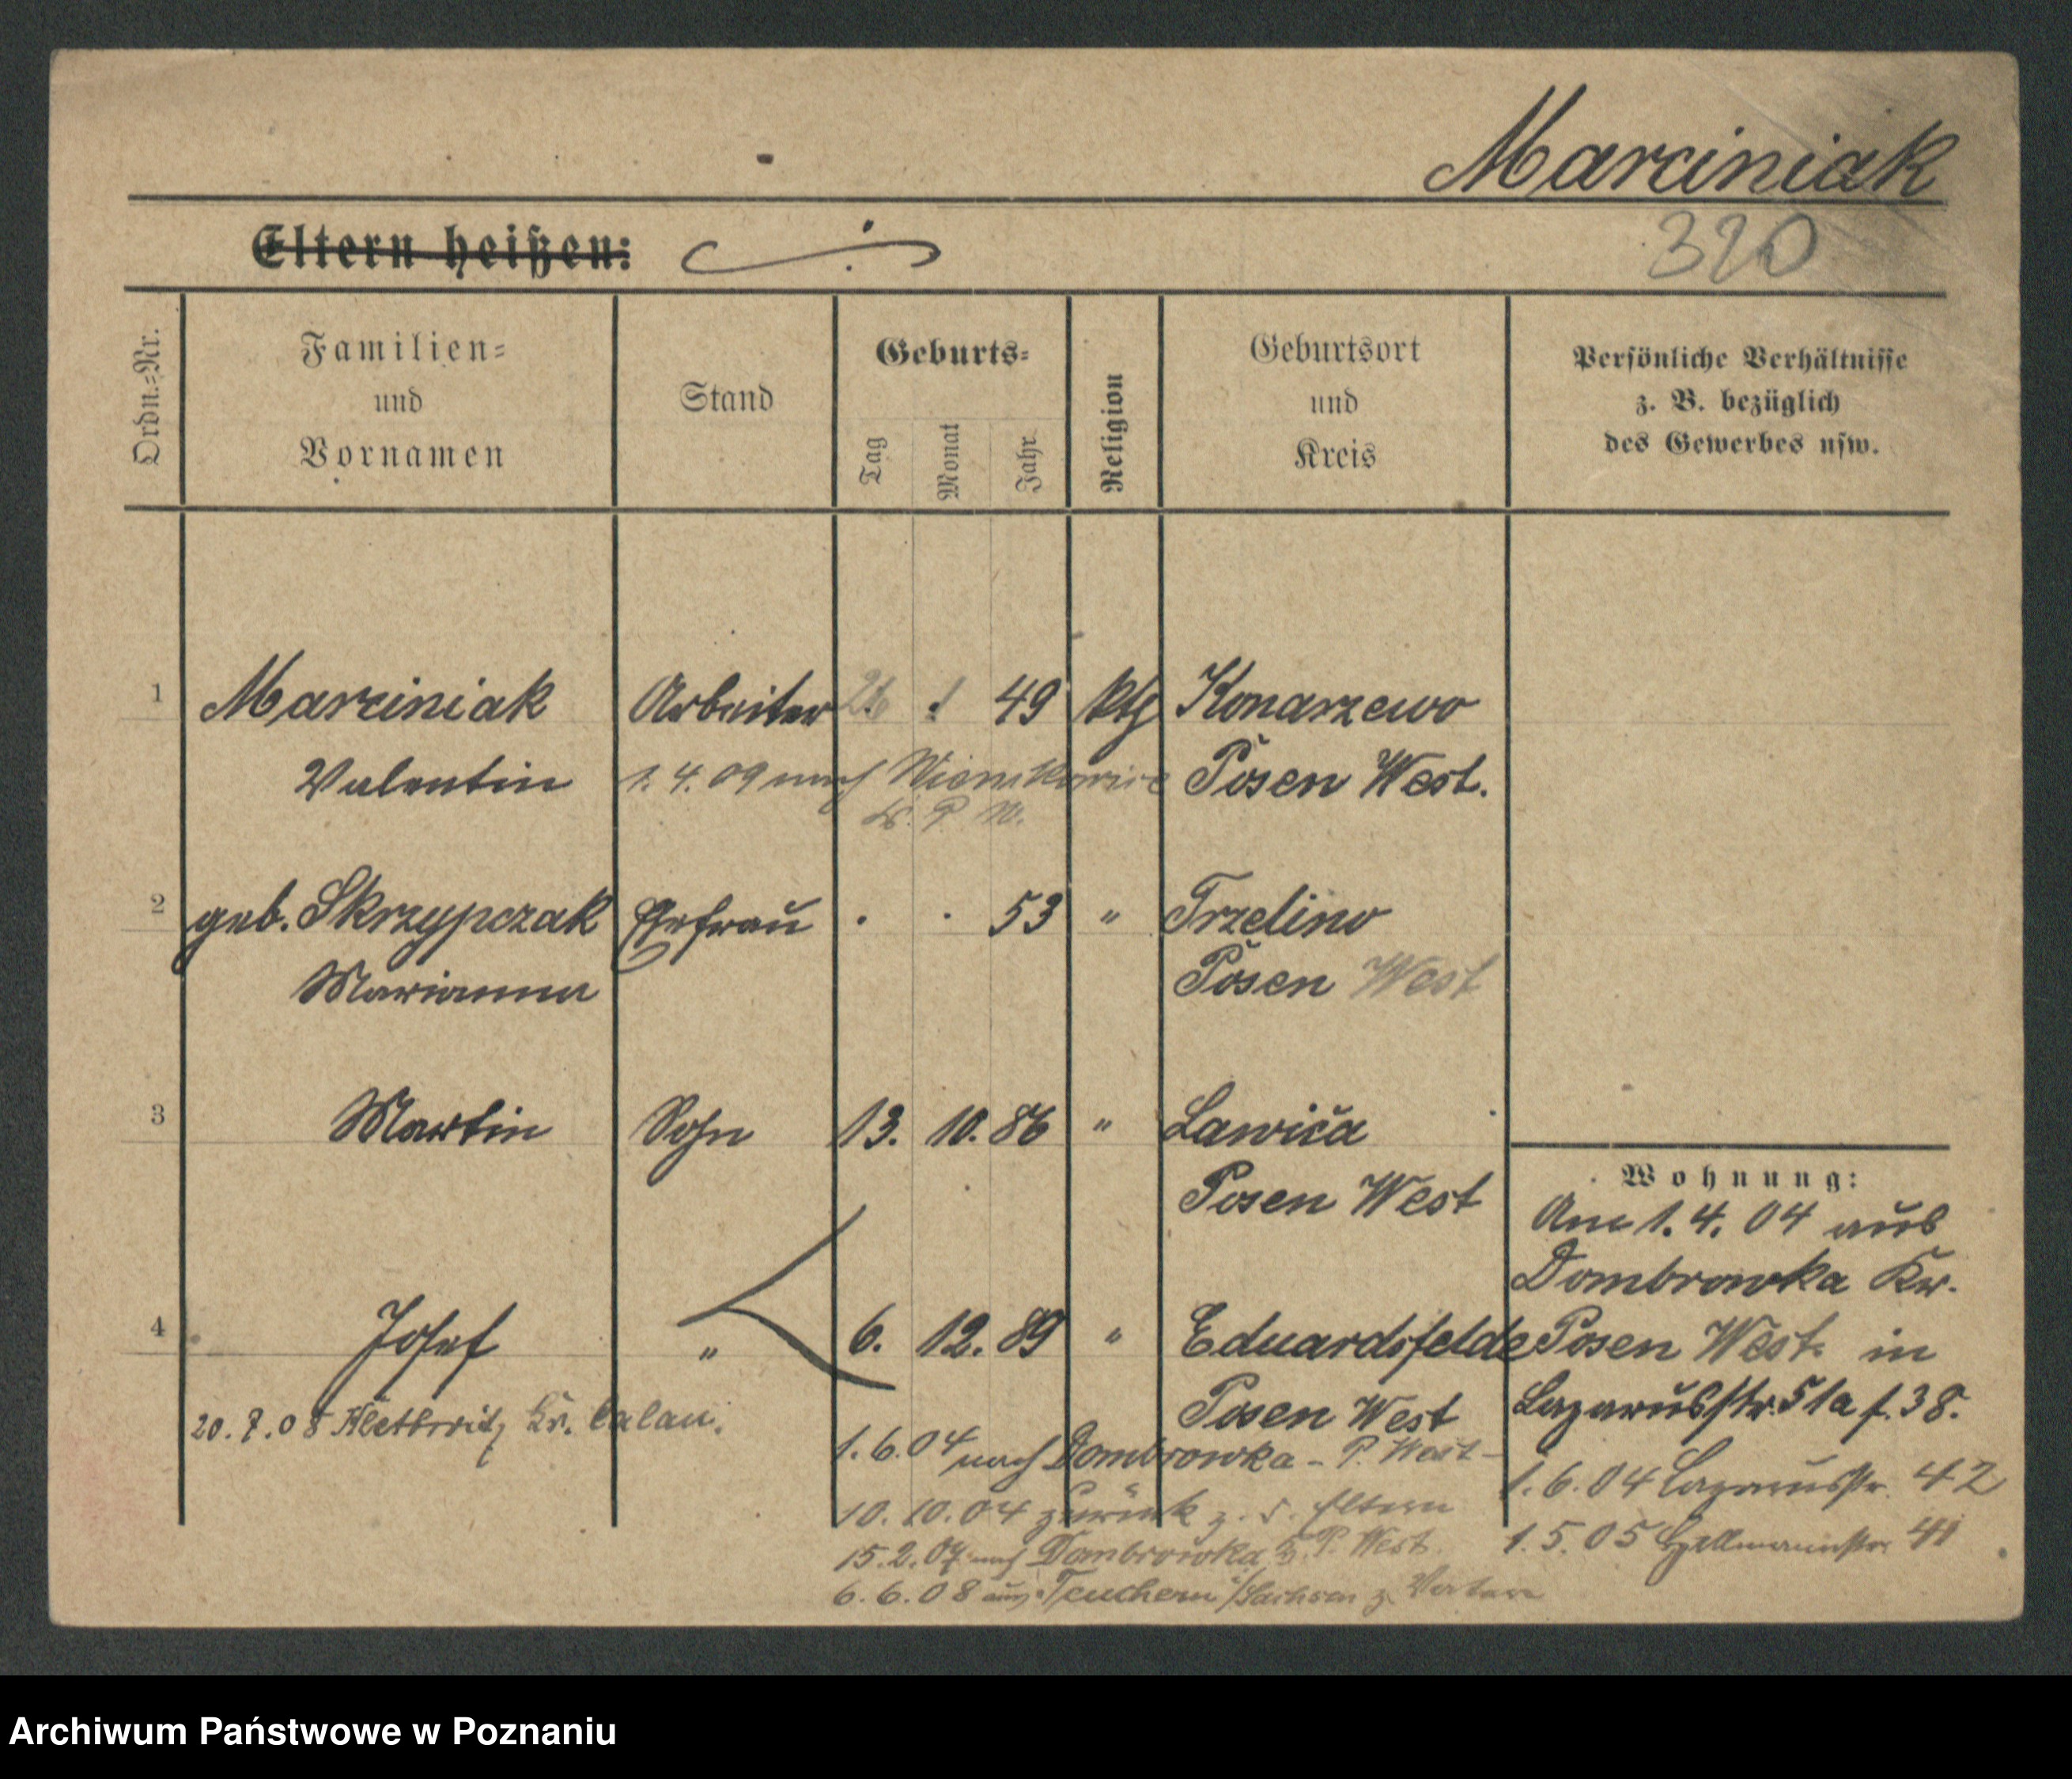 Marciniak
320
Eltern heißen:
Ordn.=Nr.
Familien=
und
Vornamen
Stand
Geburts=
Tag
Monat
Jahr
Religion
Geburtsort
und
Kreis
Persönliche Verhältnisse
z. B. bezüglich
des Gewerbes usw.
1 Marciniak Arbeiter 49 ktg Konarzewo
Valentin 1.4.09 nach Posen West.
Kr. P. W.
2 geb. Skrzypczak Ehefrau . . 53 " Trzelino
Marianna Posen West
3 Martin Sohn 13. 10. 86 " Lawica
Posen West
4 Josef " 6. 12. 89 " Eduardsfelde
Posen West
20.7.08 Kr. Calau.
1.6.04 nach Dombrowka - P. West -
10.10.04 zurück z. d. Eltern
15.2.07 nach Dombrowka P. West.
6.6.08 aus Teuchern /Sachsen z. Vater
Wohnung:
Am 1.4.04 aus
Dombrowka Kr.
Posen West. in
Lazarusstr. 51a f. 38.
1.6.04 Lazarusstr. 42
1.5.05 41
Archiwum Państwowe w Poznaniu